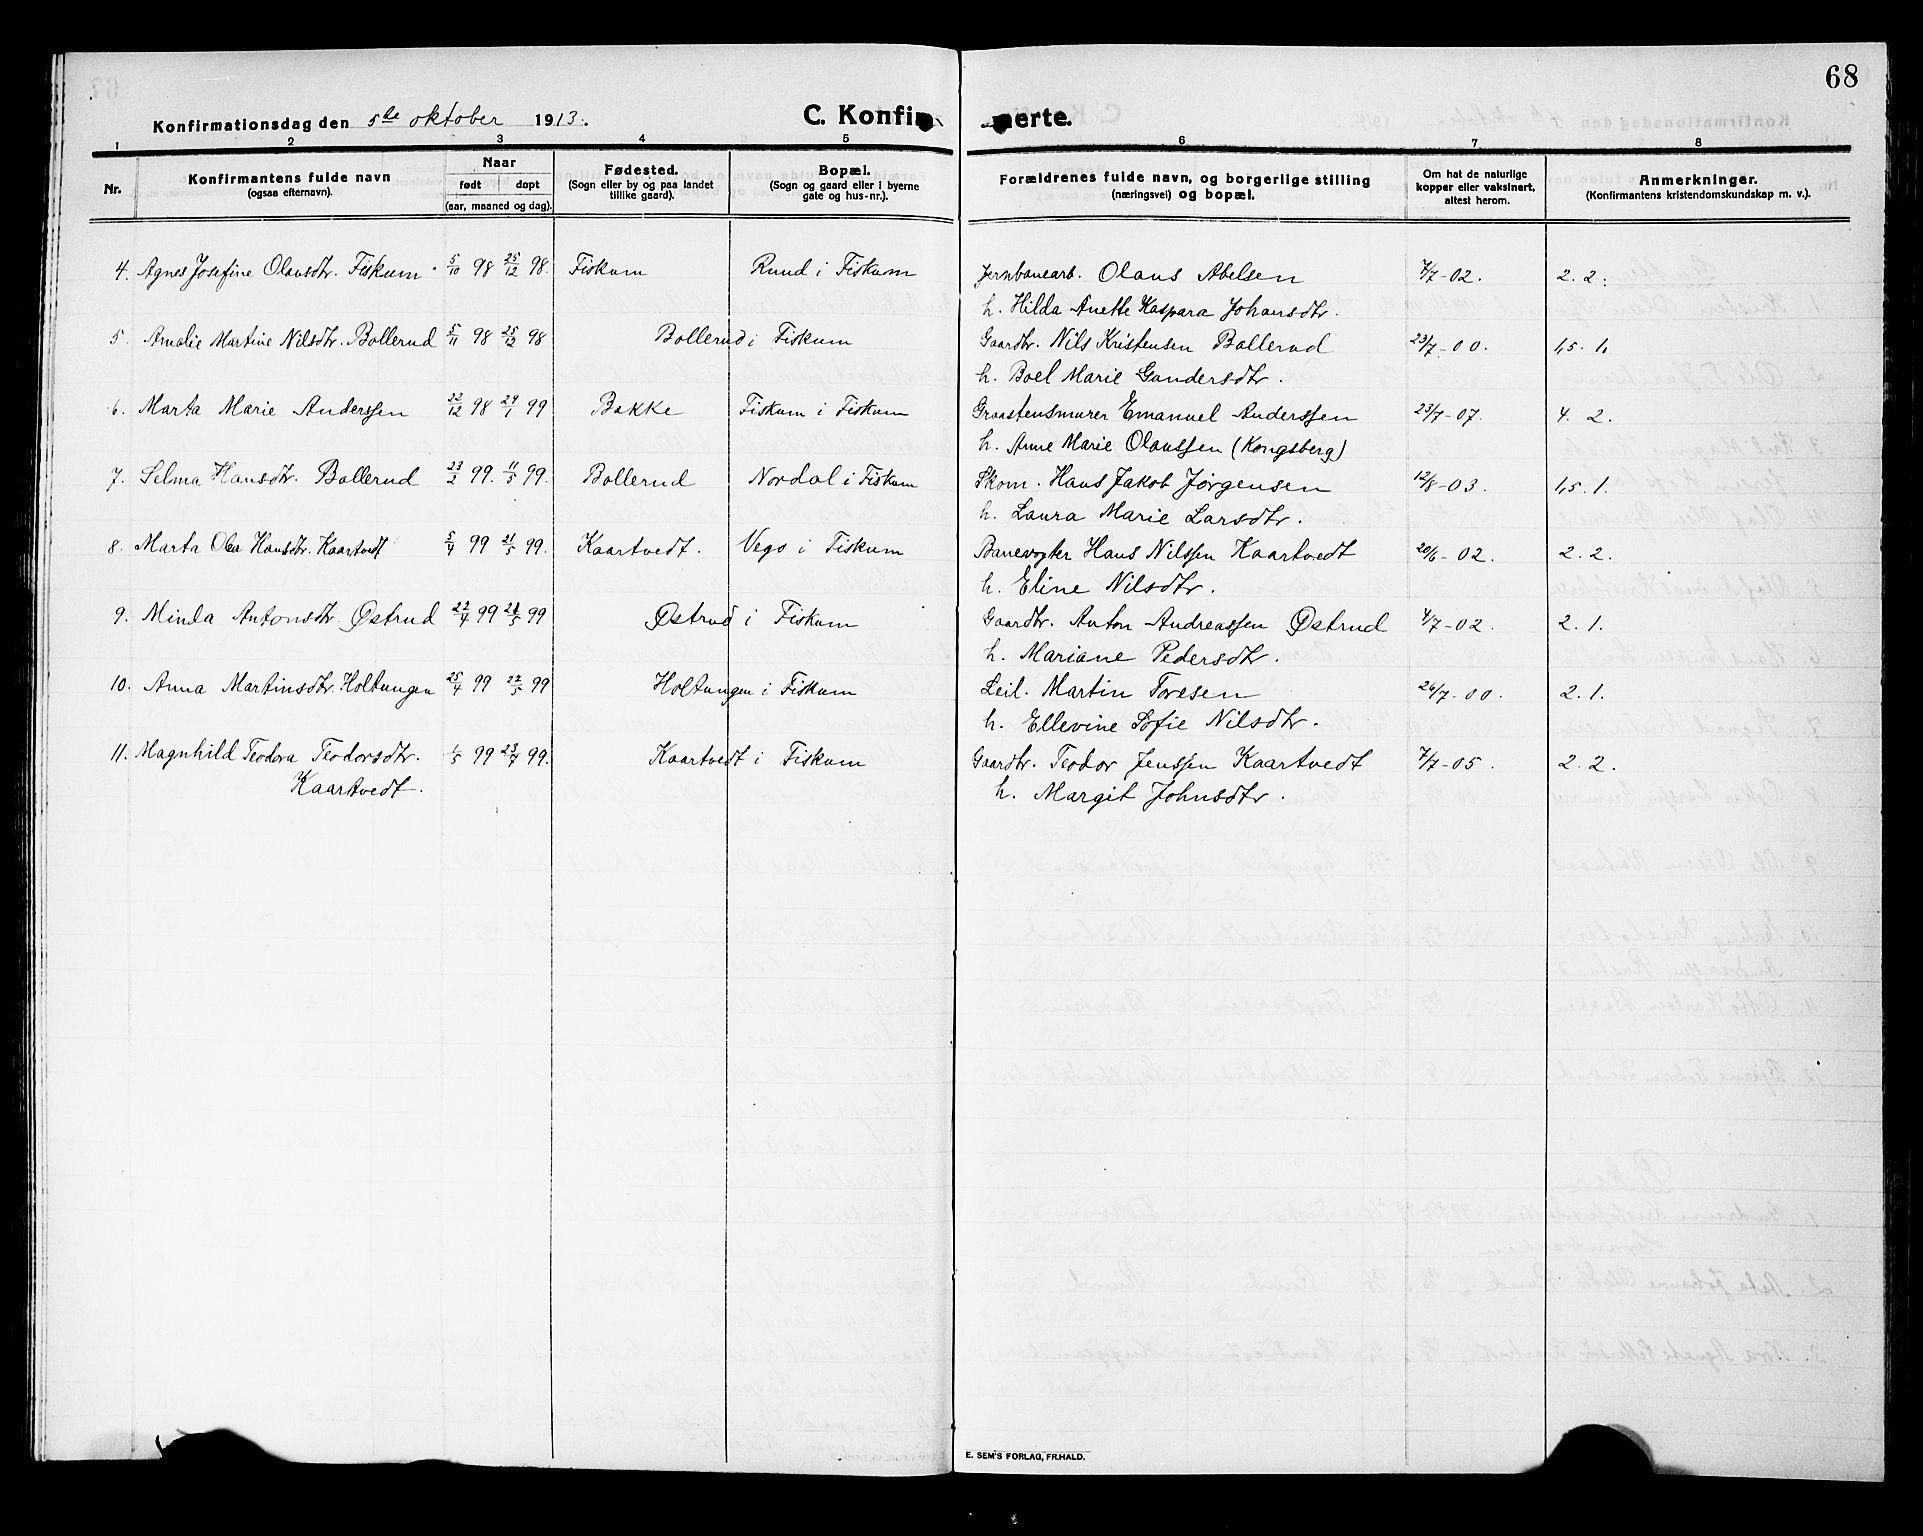 68
Konfirmationsdag den 5te oktober 1913. C. Konfirmerte.
1 2 3 4 5 6 7 8
Nr. Konfirmantens fulde navn (ogsaa efternavn). Naar født døpt (aar, maaned og dag). Fødested. (Sogn eller by og paa landet tillike gaard). Bopæl. (Sogn og gaard eller i byerne gate og hus-nr.). Forældrenes fulde navn, og borgerlige stilling (næringsvei) og bopæl. Om hat de naturlige kopper eller vaksinert, attest herom. Anmerkninger. (Konfirmantens kristendomskundskap m. v.).
4. Agnes Josefine Olausdtr. Fiskum. 5/10 98 25/12 98. Fiskum Rund i Fiskum Jernbanearb. Olaus Abelsen 7/7-02. 2. 2.
h. Hilda Anette Kaspara Johansdtr.
5. Amalie Martine Nilsdtr. Bollerud 5/11 98 25/12 98 Bollerud i Fiskum Gaardbr. Nils Kristensen Bollerud 23/7-00. 1,5. 1.
h. Boel Marie Gundersdtr.
6. Marta Marie Anderssen 22/12 98 29/1 99 Bakke Fiskum i Fiskum Graastensmurer Emanuel Anderssen 23/7-07. 4. 2.
h. Anne Marie Olaussen (Kongsberg)
7. Selma Hansdtr. Bollerud 23/2 99. 11/5 99. Bollerud Nordal i Fiskum Skom. Hans Jakob Jørgensen 12/8-03. 1,5. 1.
h. Laura Marie Larsdtr.
8. Marta Olea Hansdtr. Kaartvedt 5/4 99 21/5 99. Kaartvedt. Vego i Fiskum Banevogter Hans Nilssen Kaartvedt 20/6-02. 2. 2.
h. Eline Nilsdtr.
9. Minda Antonsdtr. Østrud 22/4 99 21/5 99 Østrud i Fiskum Gaardbr. Anton Andreassen Østrud 4/7-02. 2. 1.
h. Mariane Pedersdtr.
10. Anna Martinsdtr. Holtungen 25/4 99 22/5 99 Holtungen i Fiskum Leil. Martin Toresen 26/7-00. 2. 1.
h. Ellevine Sofie Nilsdtr.
11. Magnhild Teodora Teodorsdtr. 1/5 99 23/7 99. Kaartvedt i Fiskum Gaardbr. Teodor Jenssen Kaartvedt 7/7-05. 2. 2.
Kaartvedt. h. Margit Johnsdtr.
E. SEM'S FORLAG, FR.HALD.